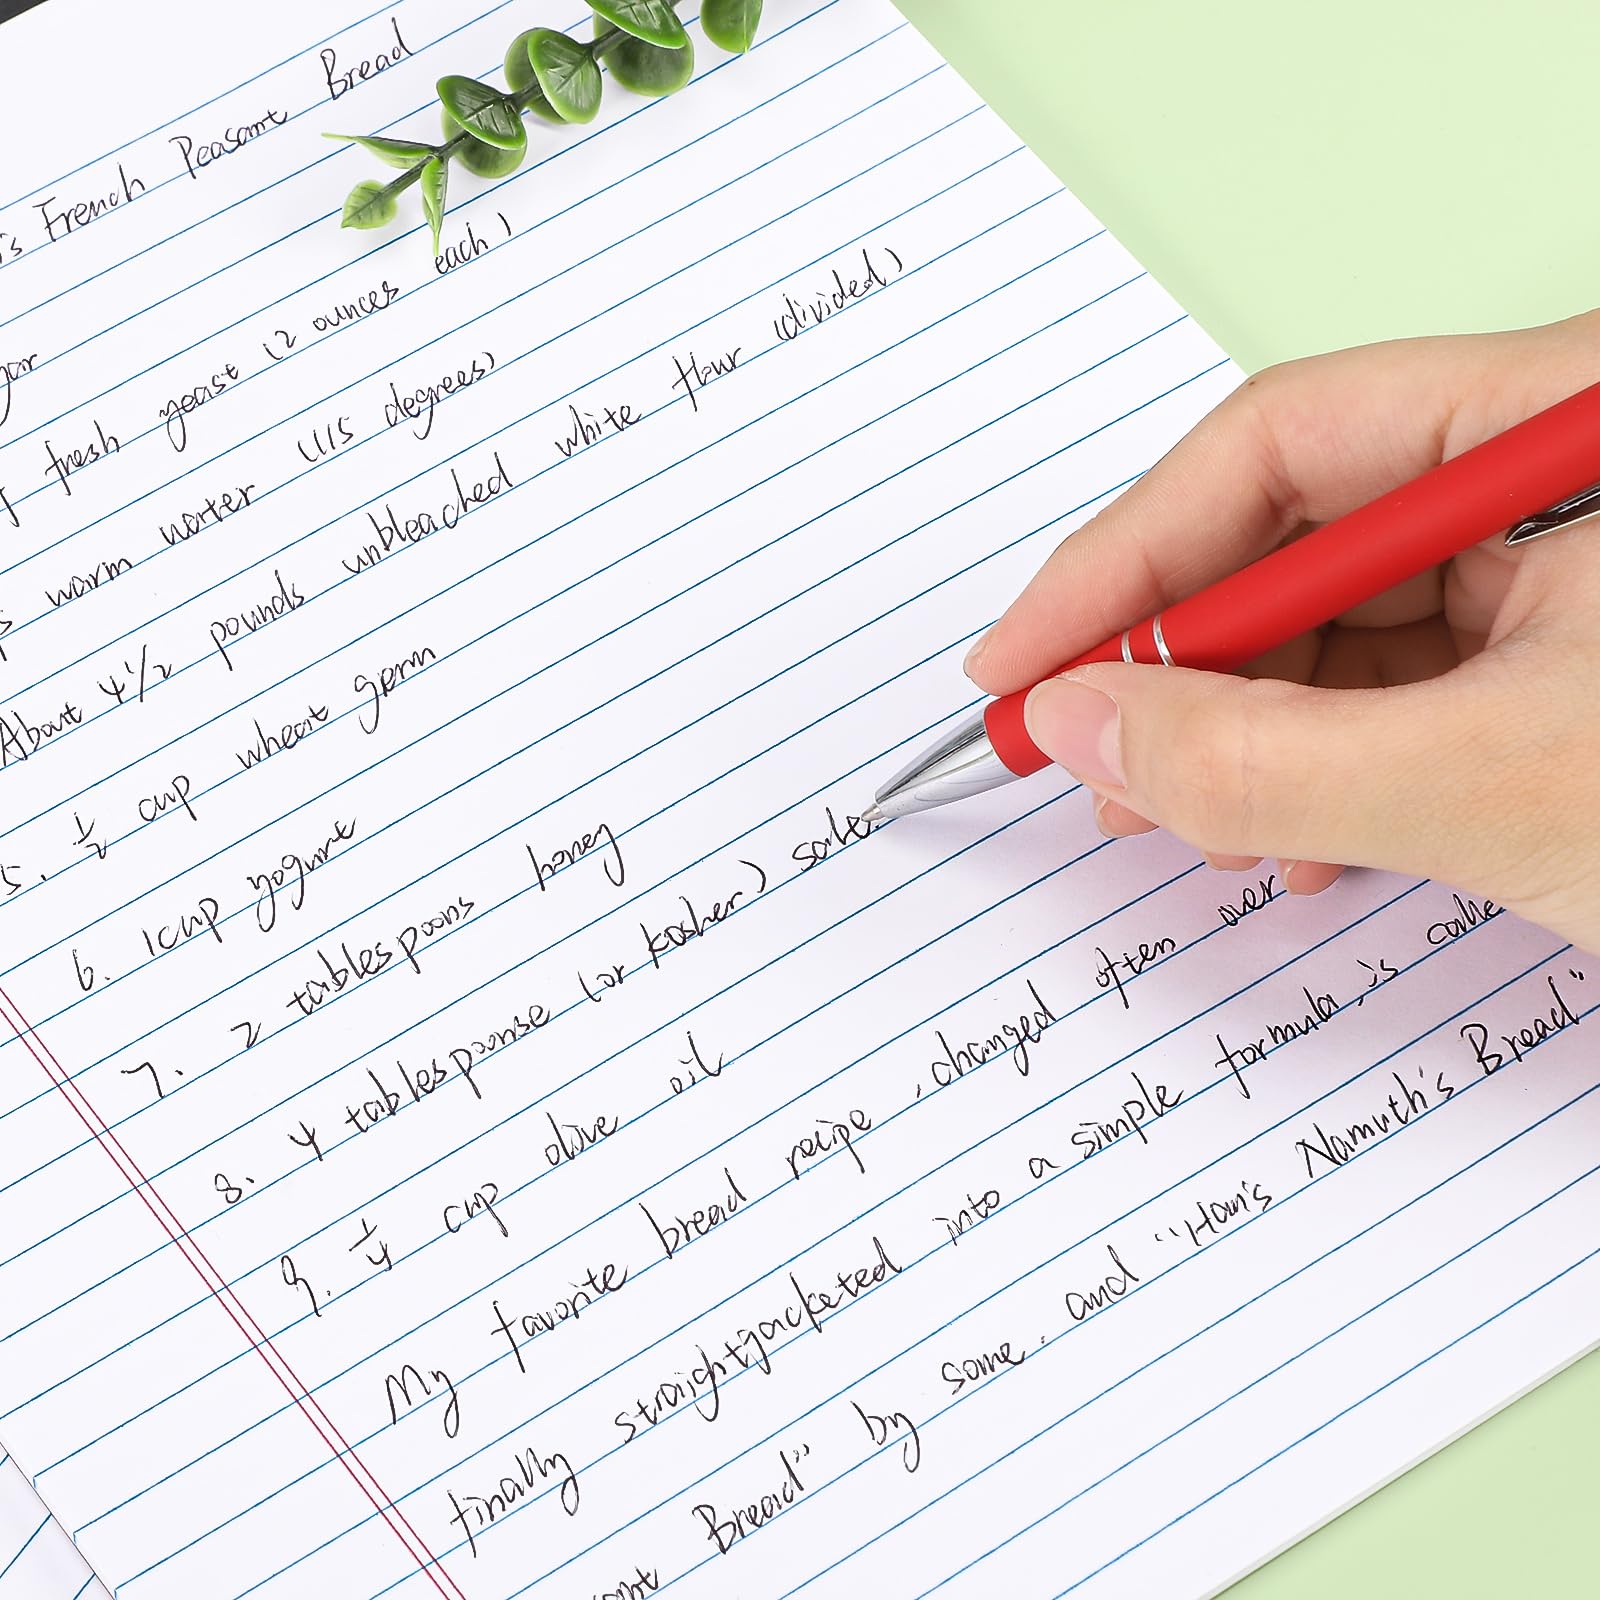 's French Peasant Bread
fresh yeast (2 ounces each)
warm water (115 degrees)
About 4 1/2 pounds unbleached white flour (divided)
5. 1/2 cup wheat germ
6. 1 cup yogurt
7. 2 tablespoons honey
8. 4 tablesponse (or kosher) salt
9. 1/4 cup olive oil
My favorite bread recipe, changed often over
finally straightjacketed into a simple formula, is calle
Bread" by some. and "Han's Namuth's Bread"